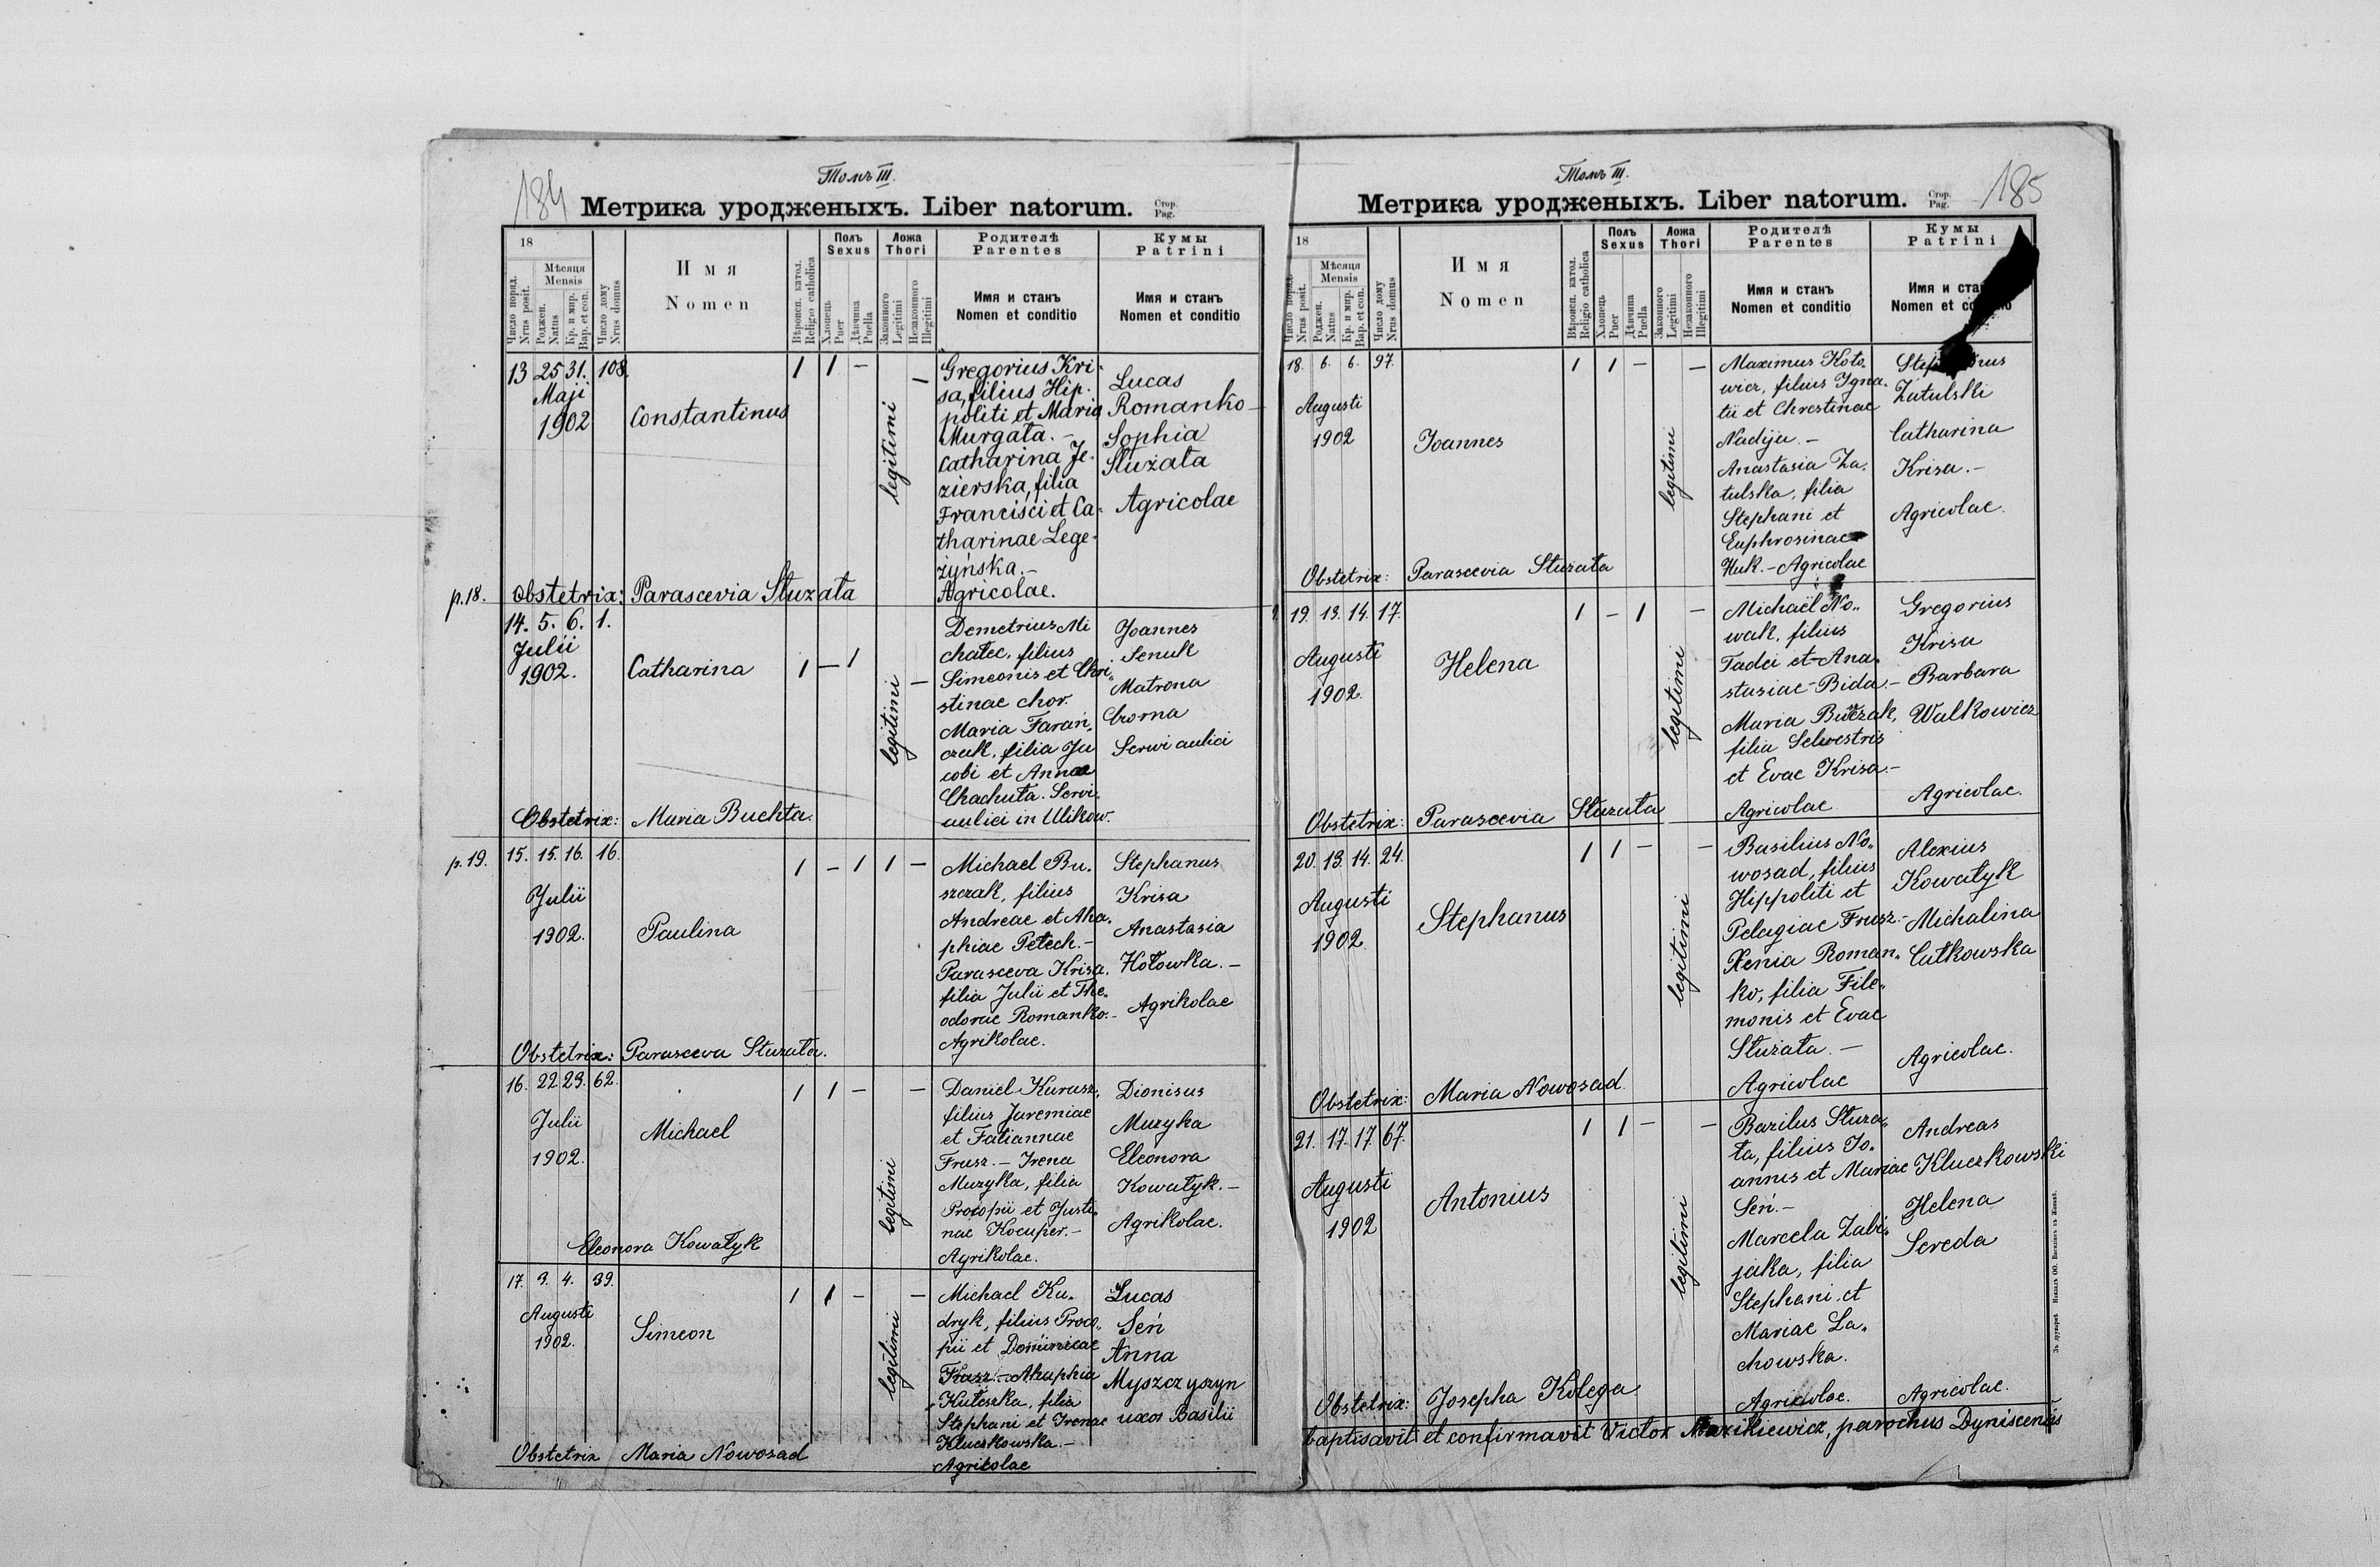 184
Томъ III.
Метрика уродженыхъ. Liber natorum. Стор. Pag.
18
Число поряд. Nrus posit.
Мѣсяця Mensis
Роджен. Natus
Кр. и мир. Bap. et con.
Число дому Nrus domus
Имя
Nomen
Вѣроисп. катол. Religio catholica
Полъ Sexus
Хлопець Puer
Дѣвчина Puella
Ложа Thori
Законного Legitimi
Незаконного Illegitimi
Родителѣ
Parentes
Имя и станъ
Nomen et conditio
Кумы
Patrini
Имя и станъ
Nomen et conditio
13 25 31. 108.
Maji
1902
Constantinus
1 1 – –
legitimi
Gregorius Kri-
sa, filius Hip-
politi et Maria
Murgata. –
Catharina Je-
zierska, filia
Francisci et Ca-
tharinae Lege-
żyńska. –
Agricolae.
Lucas
Romanko –
Sophia
Słuzata
Agricolae
p.18.
Obstetrix: Parascevia Słuzata
14. 5. 6. 1.
Julii
1902.
Catharina
1 – 1 –
legitimi
Demetrius Mi
chalec, filius
Simeonis et Chri„
stinae chor.
Maria Farań„
czuk, filia Ja
cobi et Annae
Chachuta. Servi„
aulici in Ulikow.
Joannes
Senuk
Matrona
Czorna
Servi aulici
Obstetrix: Maria Buchta.
p.19.
15. 15. 16. 16.
Julii
1902.
Paulina
1 – 1 1 –
Michael Bu„
szczak, filius
Andreae et Aha„
phiae Petech. –
Parasceva Krisa,
filia Julii et The„
odorae Romanko. –
Agrikolae.
Stephanus
Krisa
Anastasia
Hołowka. –
Agrikolae
Obstetrix: Parasceva Słuzata.
16. 22 23. 62.
Julii
1902.
Michael
1 1 – –
legitimi
Daniel Karasz,
filius Jeremiae
et Tatiannae
Frusz. – Irena
Muzyka, filia
Procopii et Justi„
nae Kocuper. –
Agrikolae.
Dionisus
Muzyka
Eleonora
Kowałyk. –
Agrikolae.
Eleonora Kowałyk
17. 3. 4. 39.
Augusti
1902.
Simeon
1 1 – –
legitimi
Michael Ku„
dryk, filius Proco„
pii et Dominicae
Frusz. – Ahaphia
Kuleszka, filia
Stephani et Irenae
Kluczkowska. –
Agricolae
Lucas
Seń
Anna
Myszczyszyn
uxor Basilii
Obstetrix Maria Nowosad
185
Томъ III.
Метрика уродженыхъ. Liber natorum. Стор. Pag.
18
Число поряд. Nrus posit.
Мѣсяця Mensis
Роджен. Natus
Кр. и мир. Bap. et con.
Число дому Nrus domus
Имя
Nomen
Вѣроисп. катол. Religio catholica
Полъ Sexus
Хлопець Puer
Дѣвчина Puella
Ложа Thori
Законного Legitimi
Незаконного Illegitimi
Родителѣ
Parentes
Имя и станъ
Nomen et conditio
Кумы
Patrini
Имя и
Nomen et
18. 6. 6. 97.
Augusti
1902
Joannes
1 1 – –
legitimi
Maximus Koto„
wicz, filius Igna„
tii et Chrestinae
Nadija. –
Anastasia Za„
tulska, filia
Stephani et
Euphrosinae
Huk. – Agricolae
Zatulski
Catharina
Krisa. –
Agricolae.
Obstetrix: Parascevia Słuzata
19. 13. 14. 17.
Augusti
1902.
Helena
1 – 1 –
legitimi
Michaël No„
wak, filius
Tadei et Ana„
stasiae Bida. –
Maria Buczak,
filia Selvestris
et Evae Krisa. –
Agricolae.
Gregorius
Krisa
Barbara
Walkowicz
Agricolae.
Obstetrix: Parascevia Słuzata
20. 13. 14. 24.
Augusti
1902.
Stephanus
1 1 – –
legitimi
Basilius No„
wosad, filius
Hippoliti et
Pelagiae Frusz. –
Xenia Roman„
ko, filia File„
monis et Evae
Słuzata. –
Agricolae
Alexius
Kowałyk
Michalina
Cutkowska
Agricolae.
Obstetrix: Maria Nowosad.
21. 17. 17. 67.
Augusti
1902
Antonius
1 1 – –
legitimi
Bazilus Słuza„
ta, filius Jo„
annis et Mariae
Seń. –
Marcela Zabi„
jaka, filia
Stephani et
Mariae La„
chowska.
Agricolae.
Andreas
Kluczkowski
Helena
Sereda
Agricolae.
Obstetrix: Josepha Kolega
baptisavit et confirmavit Victor Mazikiewicz, parochus Dyniscensis
Зъ друкарнѣ Накладъ ОО. Василіянъ въ Жовквѣ.